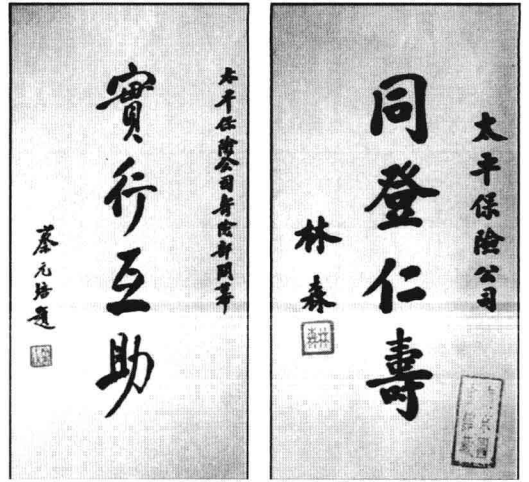 太平保險公司
同登仁壽
林森
太平保險公司壽險部開幕
實行互助
蔡元培題